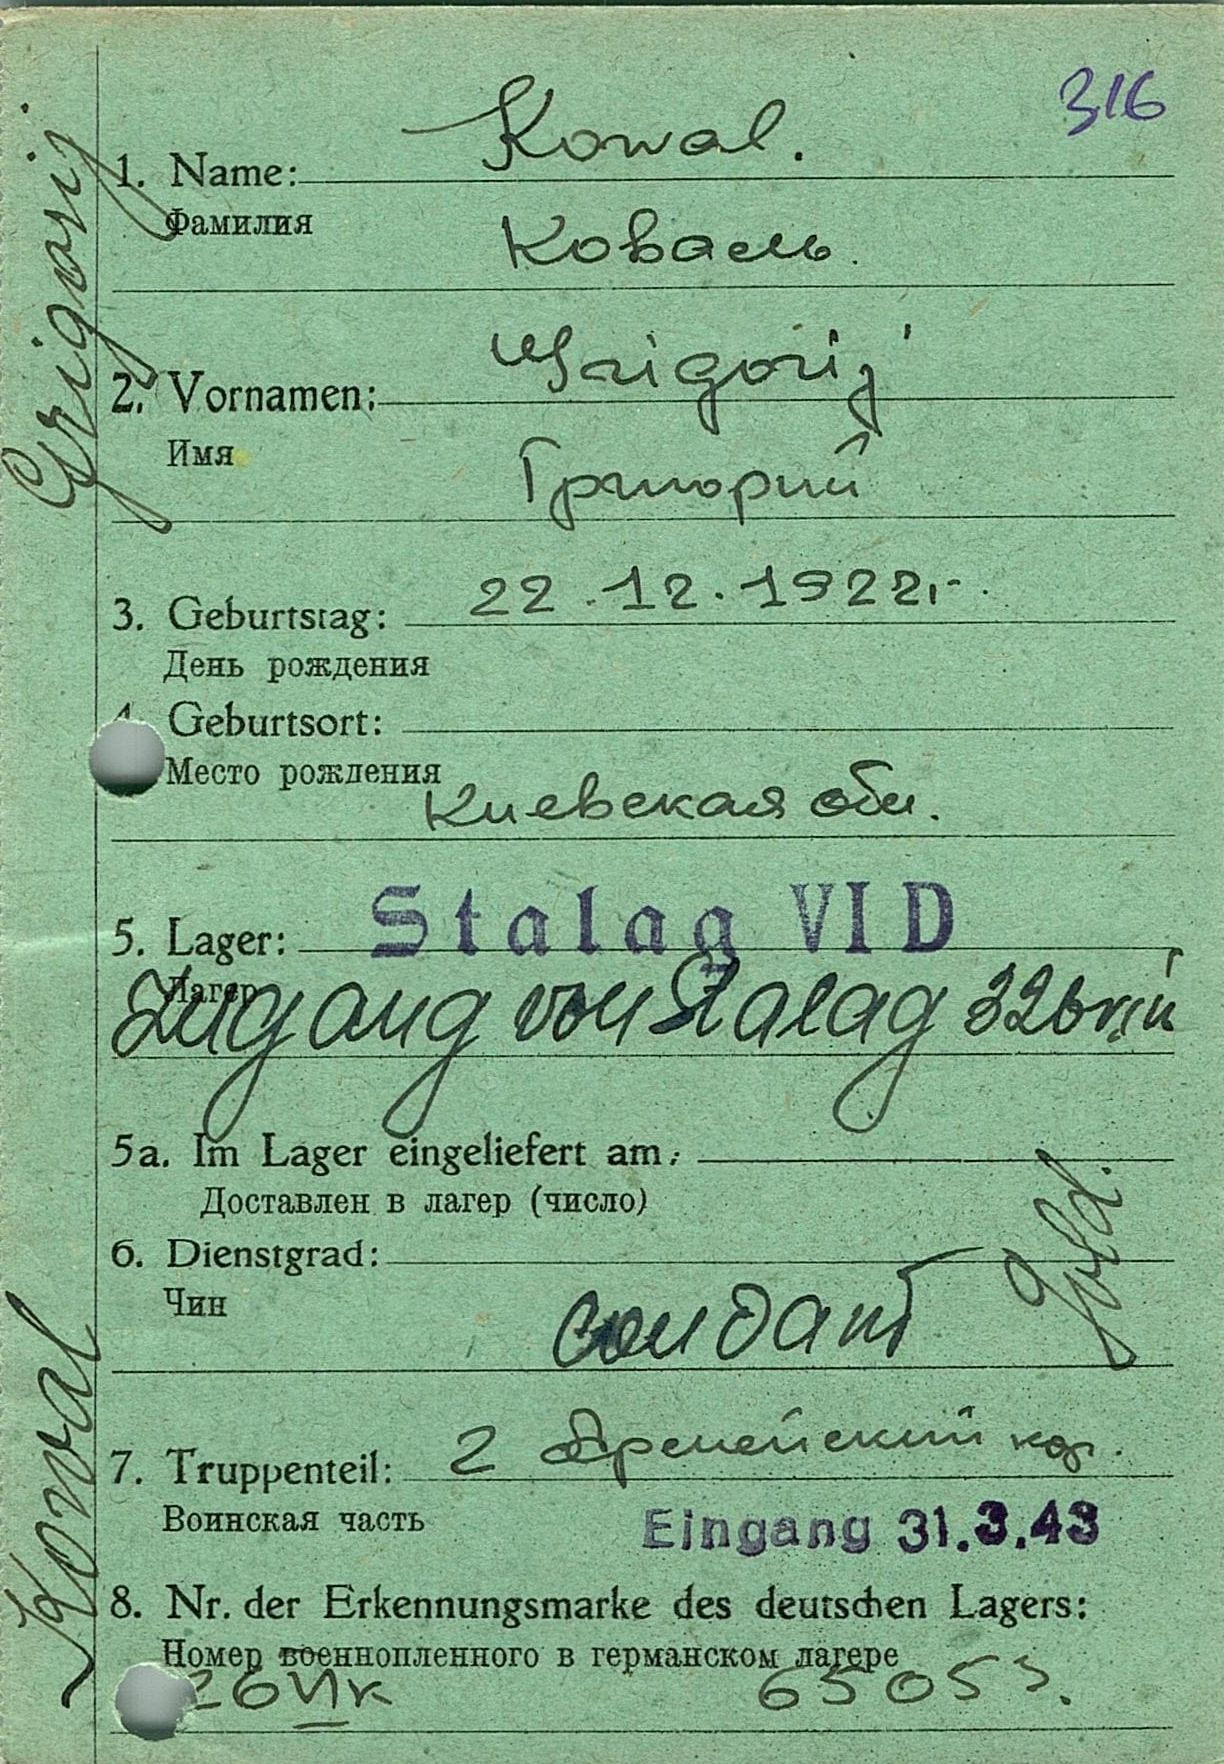 316
Kowal.
1. Name:
Фамилия
Коваль.
Grigorij
2. Vornamen:
Имя
Григорий
3. Geburtstag: 22.12.1922.
День рождения
4. Geburtsort:
Место рождения
Киевская обл.
5. Lager: Stalag VI D
Лагер
Zugang von Stalag 326
5a. Im Lager eingeliefert am:
Доставлен в лагер (число)
6. Dienstgrad:
Чин
солдант
Sold.
7. Truppenteil: 2 Армейский кор.
Воинская часть
Eingang 31.3.43
8. Nr. der Erkennungsmarke des deutschen Lagers:
Номер военнопленного в германском лагере
65053.
Kowal Grigorij